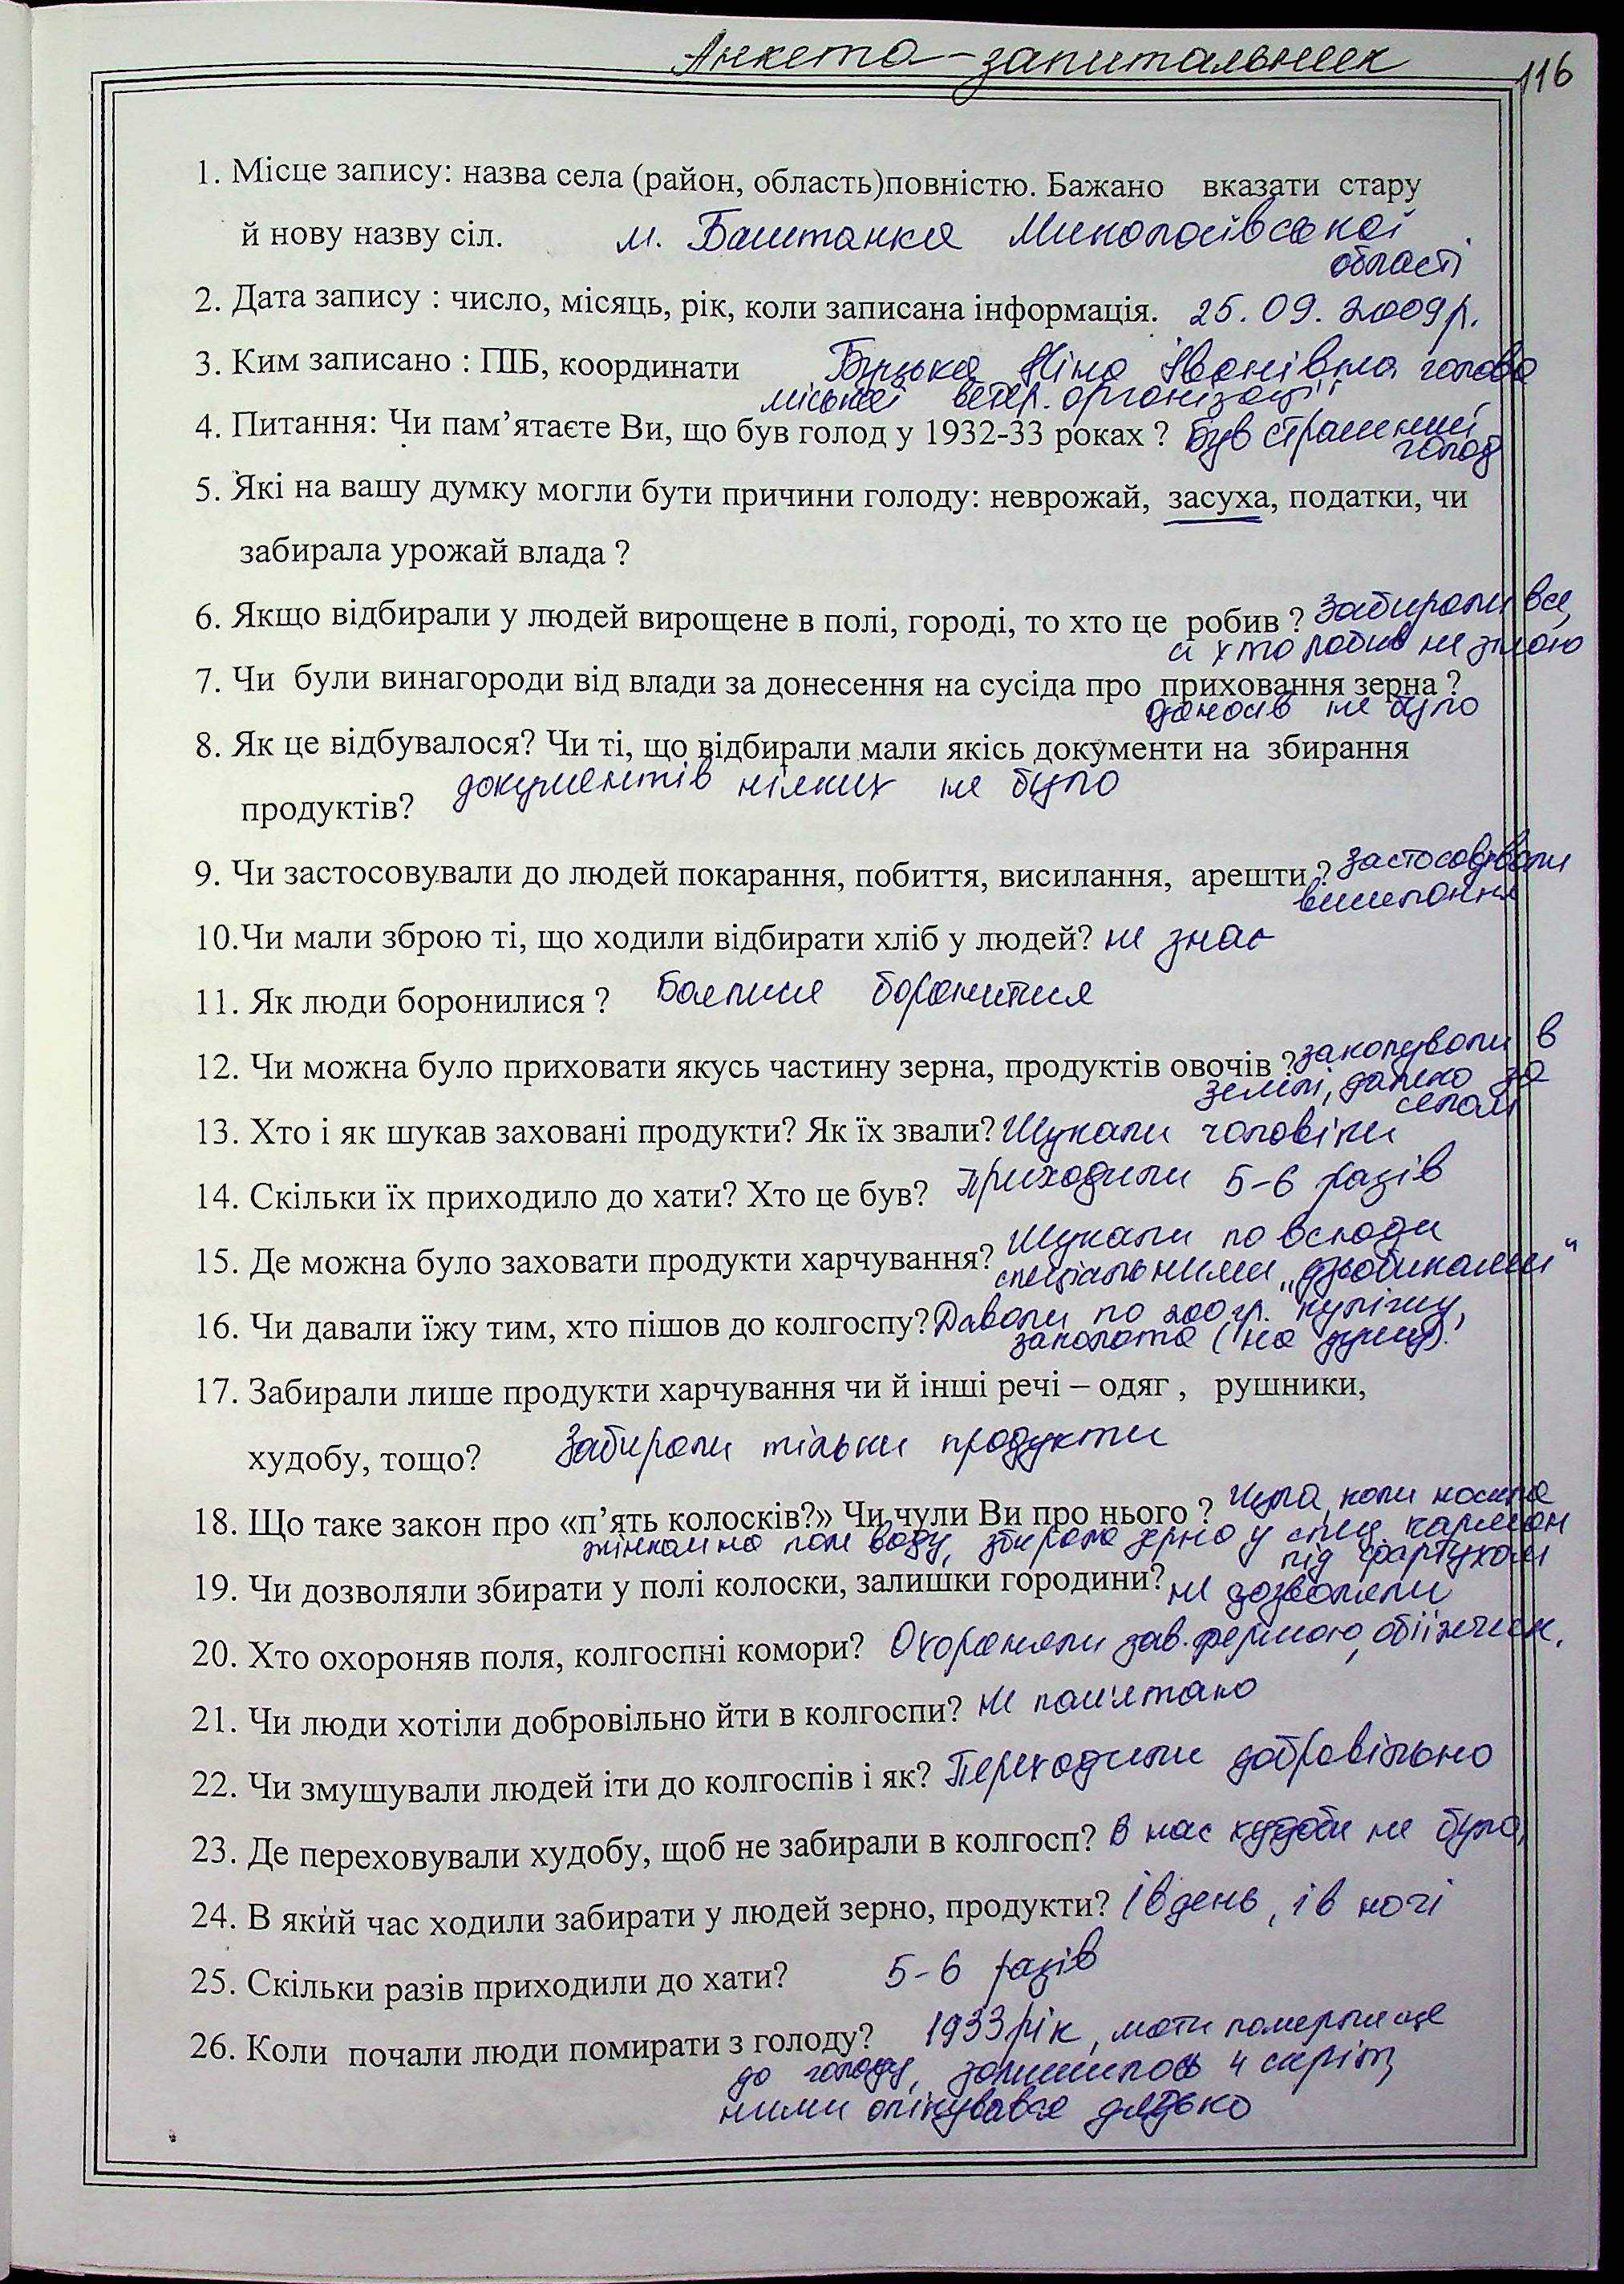 Анкета-запитальник
116
1. Місце запису: назва села (район, область)повністю. Бажано вказати стару
й нову назву сіл. м. Баштанка Миколаївської
області
2. Дата запису : число, місяць, рік, коли записана інформація. 25.09.2009р.
3. Ким записано : ПІБ, координати Ніна Іванівна голова
міської ветер. організації
4. Питання: Чи пам’ятаєте Ви, що був голод у 1932-33 роках ? був страшний
голод
5. Які на вашу думку могли бути причини голоду: неврожай, засуха, податки, чи
забирала урожай влада ?
6. Якщо відбирали у людей вирощене в полі, городі, то хто це робив ? Забирали все,
а хто робив не знаю
7. Чи були винагороди від влади за донесення на сусіда про приховання зерна ?
доносів не було
8. Як це відбувалося? Чи ті, що відбирали мали якісь документи на збирання
продуктів? документів ніяких не було
9. Чи застосовували до людей покарання, побиття, висилання, арешти ? Застосовували
висилання
10.Чи мали зброю ті, що ходили відбирати хліб у людей? не знає
11. Як люди боронилися ? Боялися боронитися
12. Чи можна було приховати якусь частину зерна, продуктів овочів ? закопували в
землі, далеко за
селом
13. Хто і як шукав заховані продукти? Як їх звали? Шукали чоловіки
14. Скільки їх приходило до хати? Хто це був? Приходили 5-6 разів
15. Де можна було заховати продукти харчування? Шукали по всюди
спеціальними „дзюбиками“
16. Чи давали їжу тим, хто пішов до колгоспу? Давали по 200 гр. кулішу,
заколота (на душу).
17. Забирали лише продукти харчування чи й інші речі – одяг , рушники,
худобу, тощо? Забирали тільки продукти
18. Що таке закон про «п’ять колосків?» Чи чули Ви про нього ? Чула, коли носила
жінкам на поле воду, збирала зерно у спец. карман
під фартухом
19. Чи дозволяли збирати у полі колоски, залишки городини? не дозволяли
20. Хто охороняв поля, колгоспні комори? Охороняли зав. фермою, обїізчик.
21. Чи люди хотіли добровільно йти в колгоспи? не пам'ятаю
22. Чи змушували людей іти до колгоспів і як? Переходили добровільно
23. Де переховували худобу, щоб не забирали в колгосп? В нас худоби не було,
24. В який час ходили забирати у людей зерно, продукти? І в день, і в ночі
25. Скільки разів приходили до хати? 5-6 разів
26. Коли почали люди помирати з голоду? 1933 рік, мати померла ще
до голоду, залишилось 4 сиріт,
ними опікувався дядько